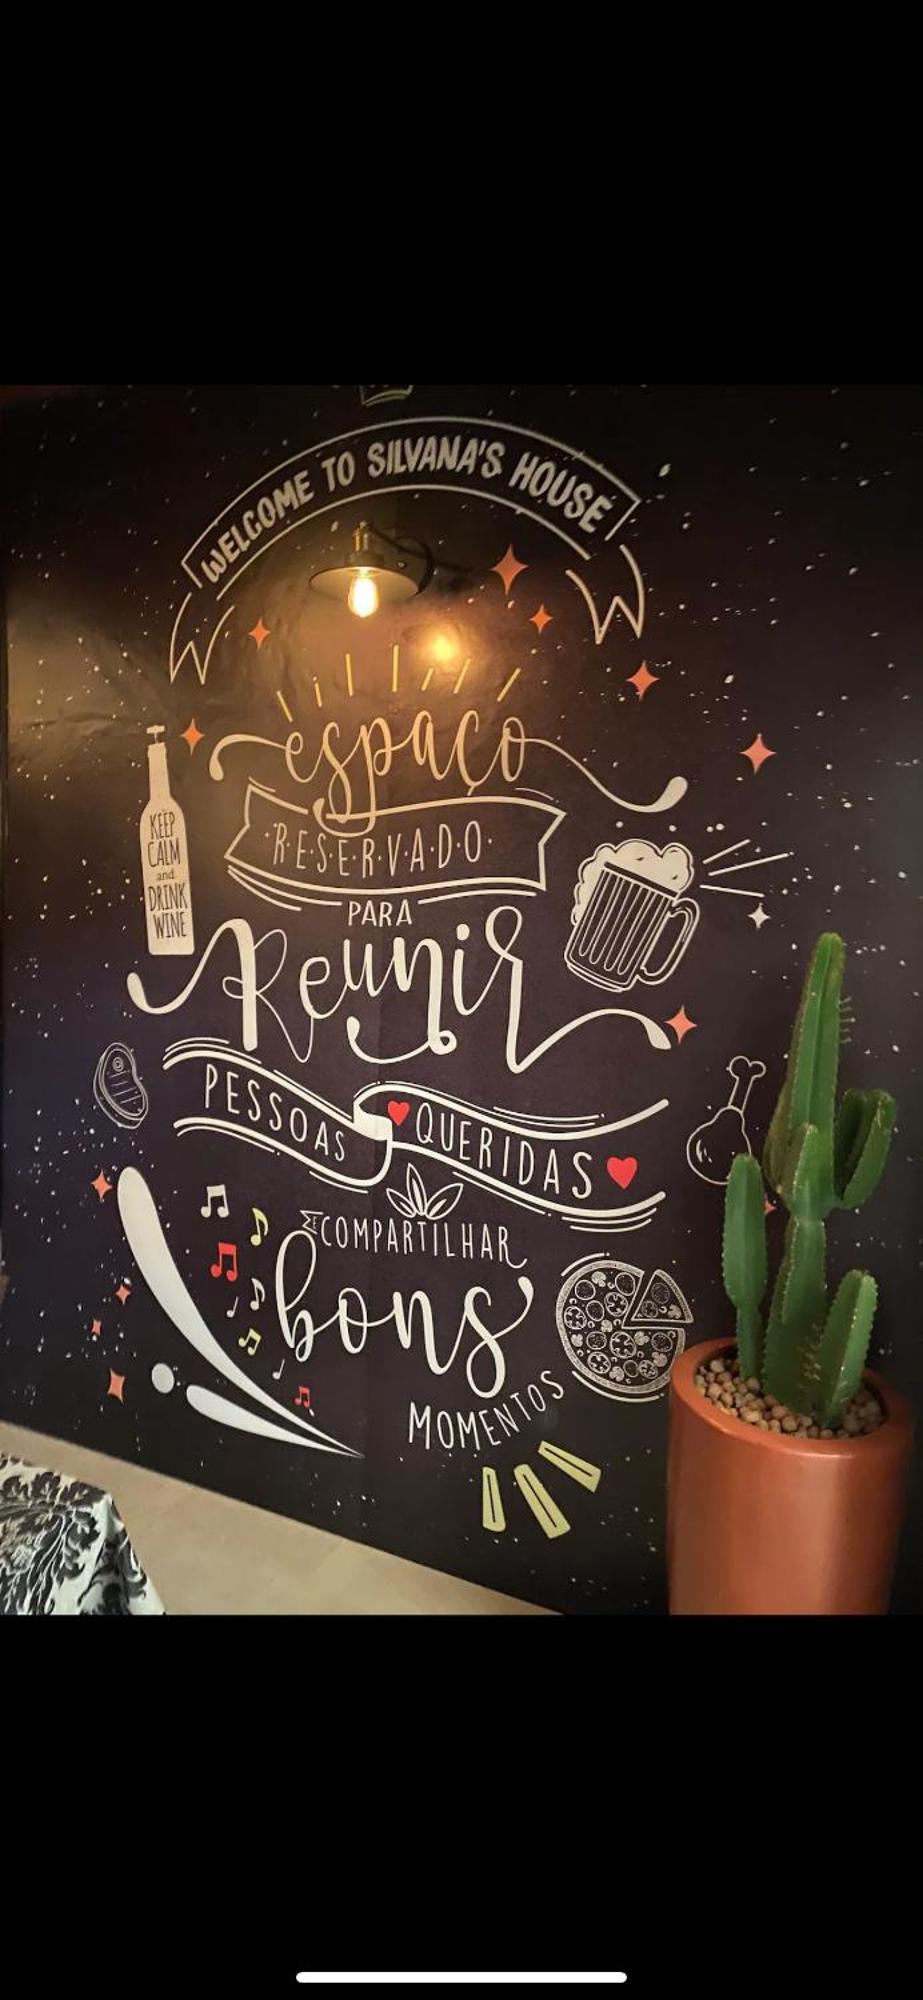 WELCOME TO SILVANA'S HOUSE
espaço
R·E·S·E·R·V·A·D·O
PARA
Reunir
KEEP
CALM
and
DRINK
WINE
PESSOAS QUERIDAS
E COMPARTILHAR
bons
MOMENTOS